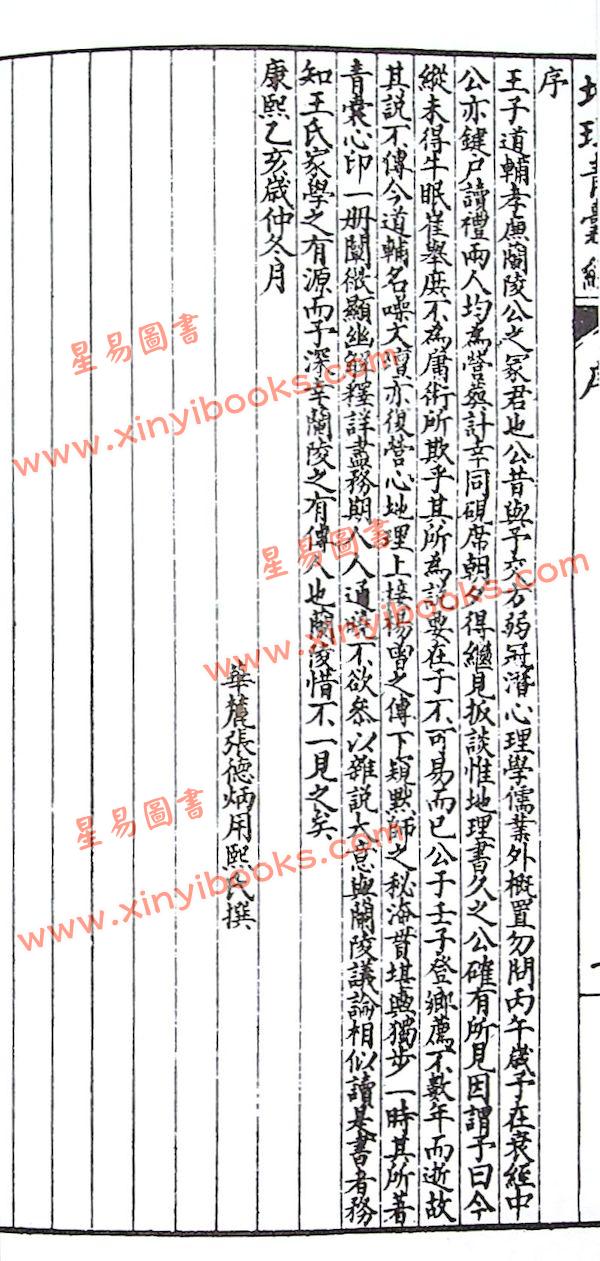 序
王子道輔孝廉蘭陵公之冢君也公昔與予交方弱冠潛心理學儒業外概置勿問丙午歲予在衰絰中
公亦鍵戶讀禮兩人均為營葬計幸同硯席朝夕得繼見扳談惟地理書久之公確有所見因謂予曰今
縱未得牛眠崔舉庶不為庸術所欺乎其所為說要在于不可易而已公子壬子登鄉薦不數年而逝故
其說不傳今道輔名噪大嚝亦復營心地理上接楊曾之傳下窺默師之秘海昔堪輿獨步一時其所著
青囊心印一冊闡微顯幽解釋詳盡務期人人通曉不欲叅以雜說大意與蘭陵議論相似讀是書者務
知王氏家學之有源而予深幸蘭陵之有傳人也蘭陵惜不一見之矣
康熙乙亥歲仲冬月
華麓張德炳用熙氏撰
星易圖書
www.xinyibooks.com
星易圖書
www.xinyibooks.com
星易圖書
www.xinyibooks.com